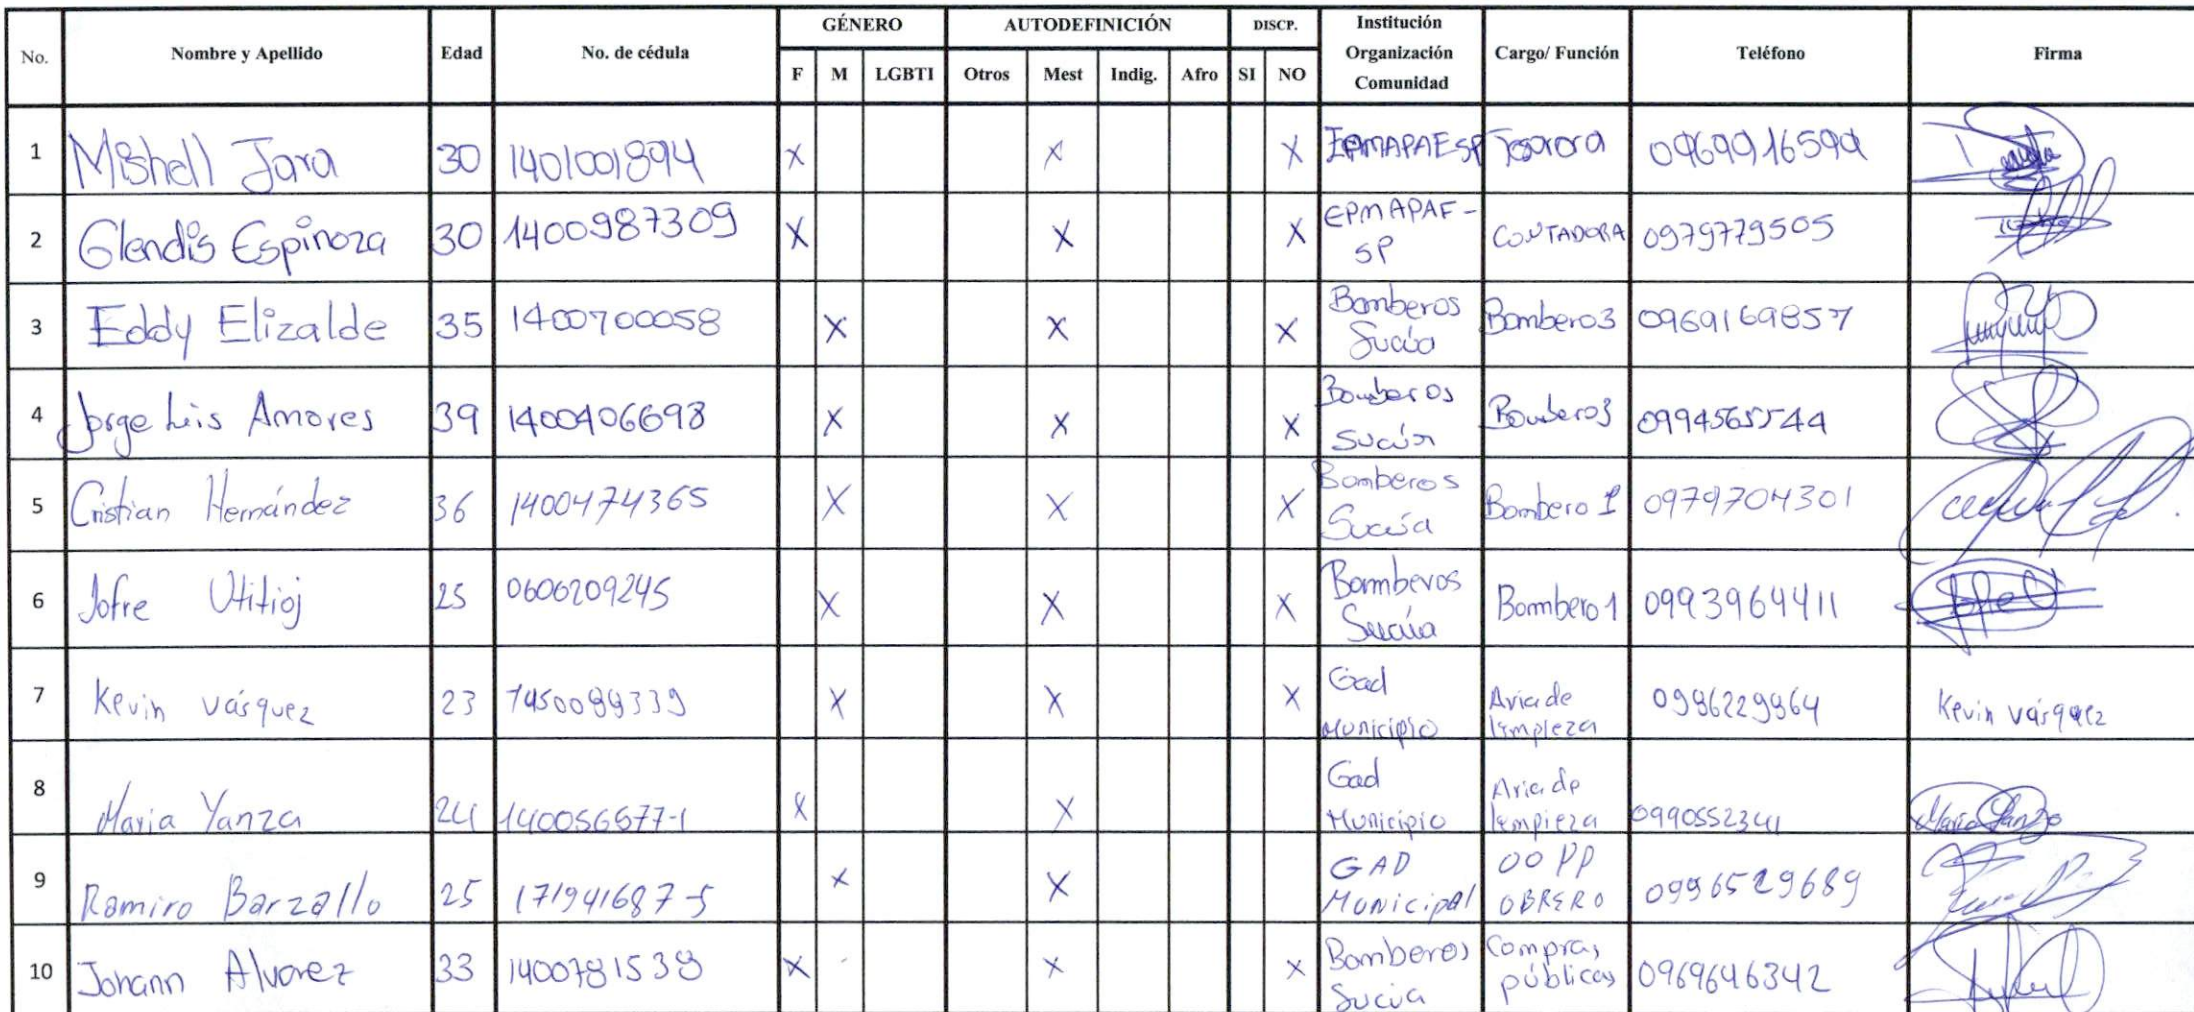 No. Nombre y Apellido Edad No. de cédula GÉNERO AUTODEFINICIÓN DISCP. Institución Organización Comunidad Cargo/ Función Teléfono Firma
F M LGBTI Otros Mest Indig. Afro SI NO
1 Mishell Jara 30 1401001894 X X X EPMAPAESP Tesorera 0969916594
2 Glendis Espinoza 30 1400987309 X X X EPMAPAF-SP CONTADORA 0979779505
3 Eddy Elizalde 35 1400700058 X X X Bomberos Sucúa Bombero3 0969169857
4 Jorge Luis Amores 39 1400406698 X X X Bomberos Sucúa Bombero3 0994565544
5 Cristian Hernández 36 1400474365 X X X Bomberos Sucúa Bombero 1 0979704301
6 Jofre Utitioj 25 0606209245 X X X Bomberos Sucúa Bombero 1 0993964411
7 Kevin vásquez 23 X X X Gad Municipio Aria de limpieza Kevin vásquez
8 Maria Yanza 24 140056677-1 X X Gad Municipio Aria de limpieza 0990552341 Maria Yanza
9 Ramiro Barzallo 25 171941687-5 X X GAD Municipal OO PP OBRERO 0996529689
10 Johann Alvarez 33 1400781538 X X X Bomberos Sucúa Compras públicas 0969646342